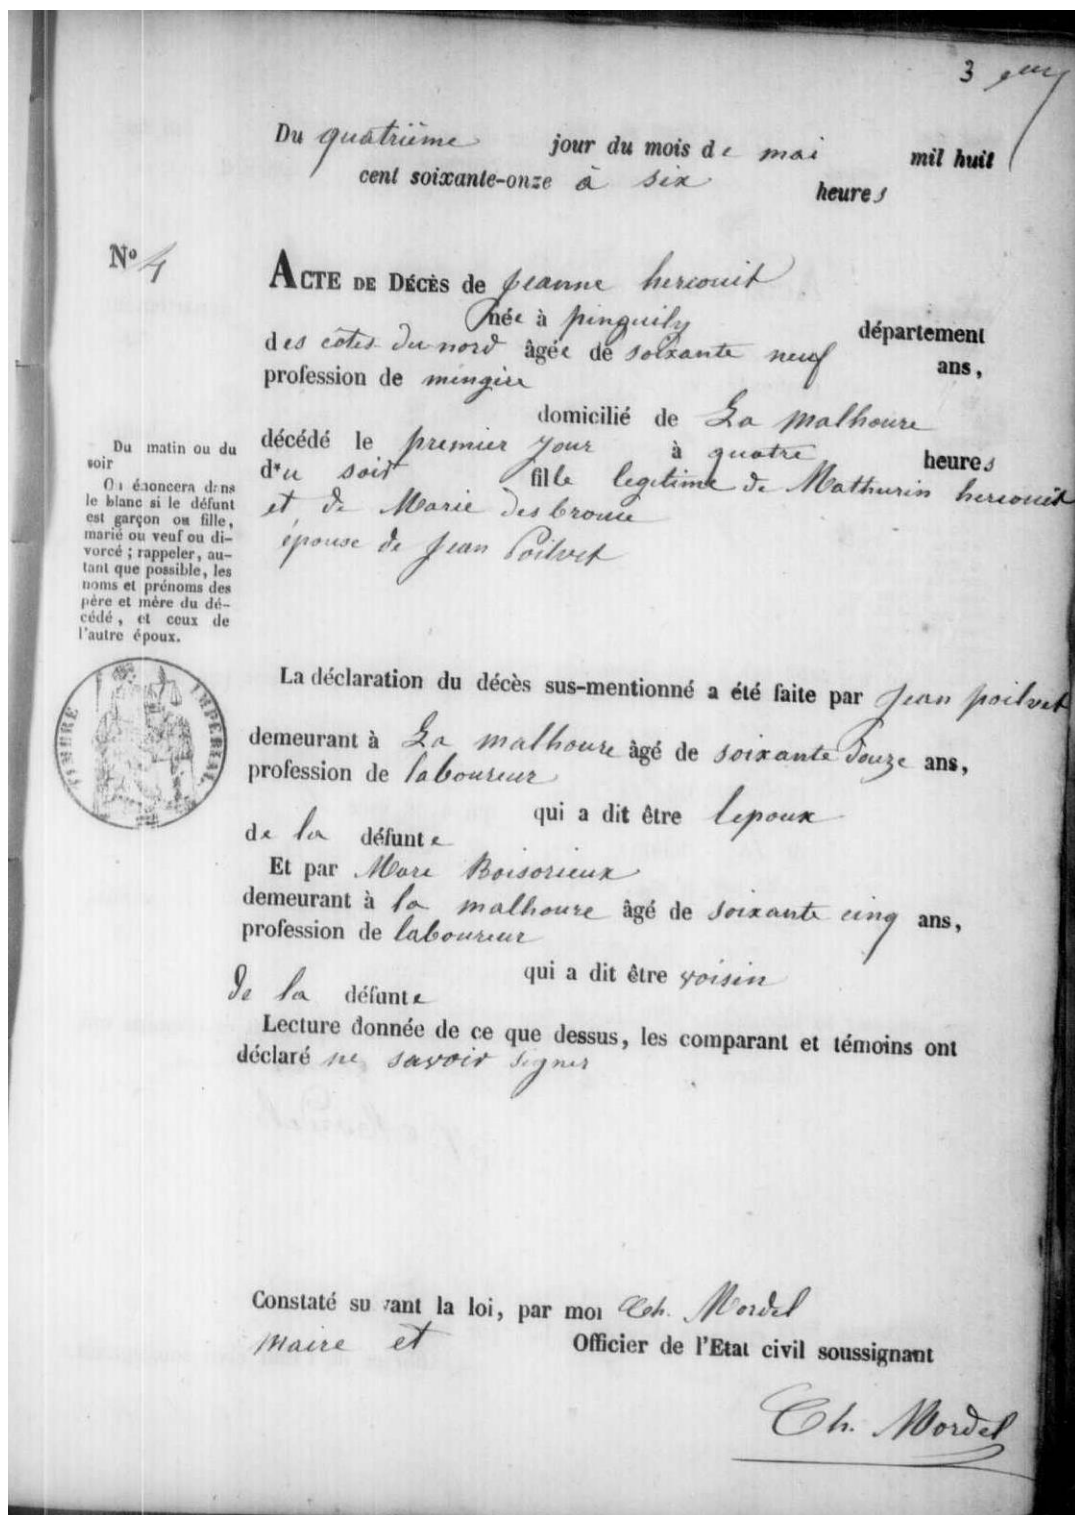 3
Du quatrième jour du mois de mai mil huit
cent soixante-onze à six heures
No 4
ACTE DE DÉCÈS de jeanne hercouit
née à pinguily département
des cotes du nord âgée de soixante neuf ans,
profession de mengire
domicilié de La malhoure
décédé le premier jour à quatre heures
du soir fille legitime de Mathurin hercouit
et de Marie desbrouse
épouse de jean Poilvet
Du matin ou du
soir
On énoncera dans
le blanc si le défunt
est garçon ou fille,
marié ou veuf ou di-
vorcé ; rappeler, au-
tant que possible, les
noms et prénoms des
père et mère du dé-
cédé, et ceux de
l'autre époux.
TIMBRE IMPERIAL
La déclaration du décès sus-mentionné a été faite par jean poilvet
demeurant à La malhoure âgé de soixante douze ans,
profession de laboureur
qui a dit être lepoux
de la défunte
Et par Marc Boisorieux
demeurant à la malhoure âgé de soixante cinq ans,
profession de laboureur
qui a dit être voisin
de la défunte
Lecture donnée de ce que dessus, les comparant et témoins ont
déclaré ne savoir signer
Constaté suivant la loi, par moi Ch. Mordel
maire et Officier de l'Etat civil soussignant
Ch. Mordel